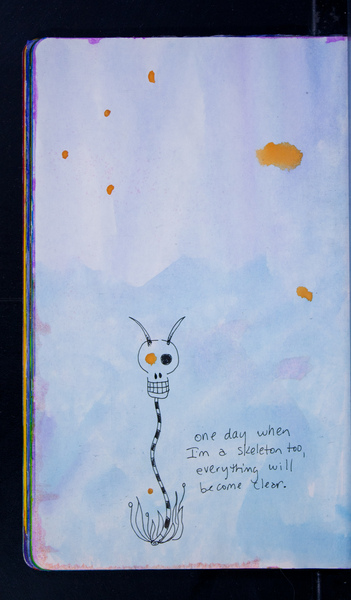 one day when
I'm a skeleton too,
everything will
become clear.